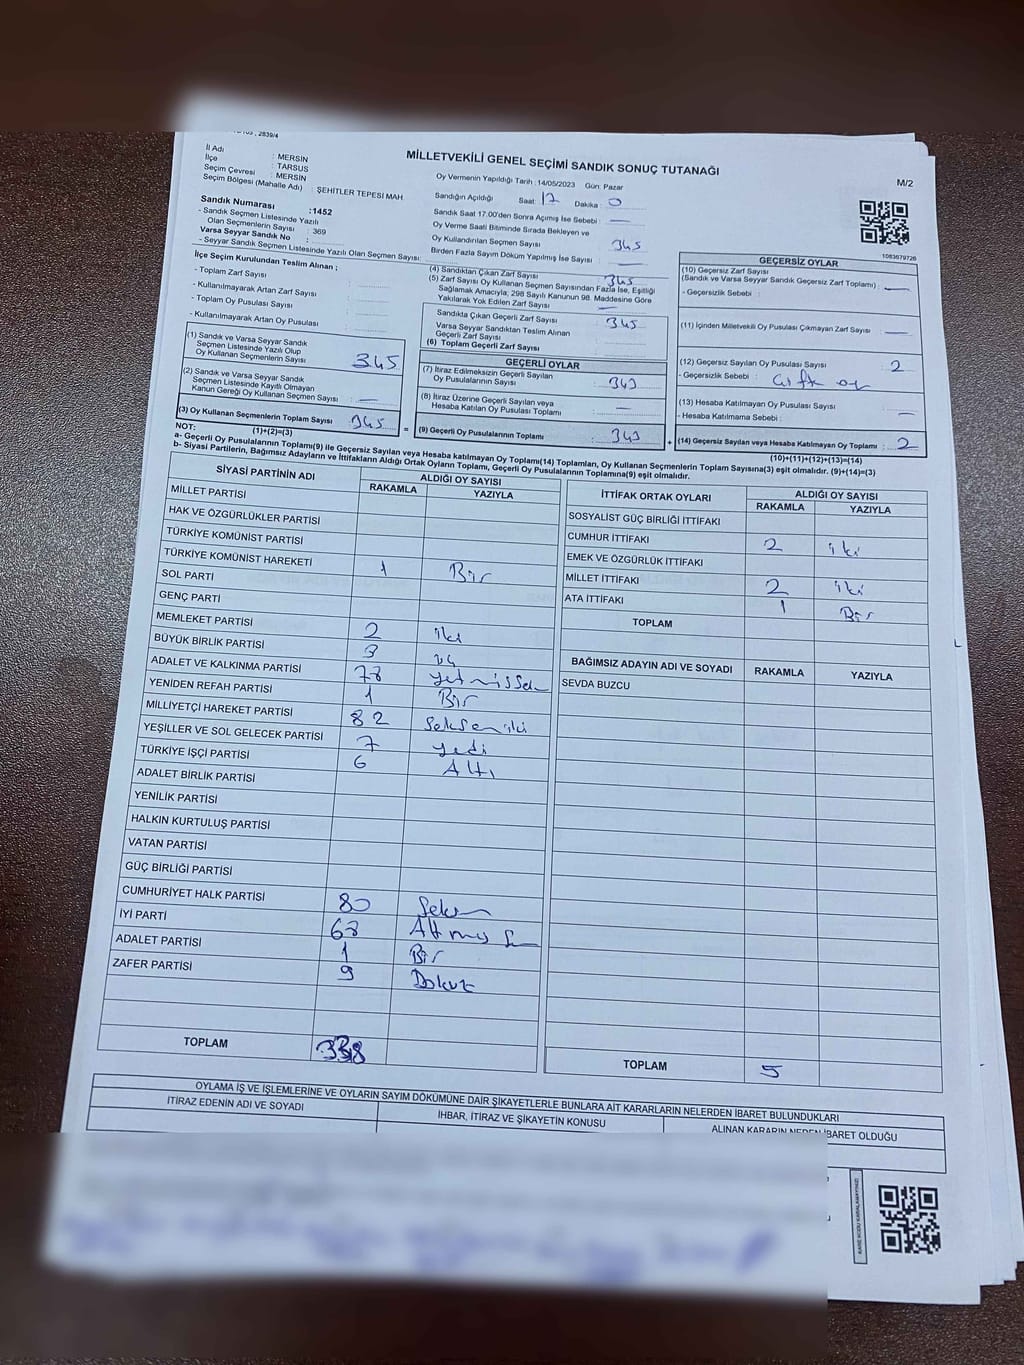 MİLLETVEKİLİ GENEL SEÇİMİ SANDIK SONUÇ TUTANAĞI
M/2
İl Adı : MERSİN
İlçe : TARSUS
Seçim Çevresi : MERSİN
Seçim Bölgesi (Mahalle Adı) : ŞEHİTLER TEPESİ MAH
Sandık Numarası :1452
- Sandık Seçmen Listesinde Yazılı
Olan Seçmenlerin Sayısı : 369
Varsa Seyyar Sandık No :
- Seyyar Sandık Seçmen Listesinde Yazılı Olan Seçmen Sayısı:
Oy Vermenin Yapıldığı Tarih :14/05/2023 Gün: Pazar
Sandığın Açıldığı Saat: 17 Dakika : 0
Sandık Saat 17:00'den Sonra Açımış İse Sebebi : —
Oy Verme Saati Bitiminde Sırada Bekleyen ve
Oy Kullandırılan Seçmen Sayısı : 345
Birden Fazla Sayım Döküm Yapılmış İse Sayısı : —
1083679726
İlçe Seçim Kurulundan Teslim Alınan ;
- Toplam Zarf Sayısı :
- Kullanılmayarak Artan Zarf Sayısı :
- Toplam Oy Pusulası Sayısı :
- Kullanılmayarak Artan Oy Pusulası :
(1) Sandık ve Varsa Seyyar Sandık
Seçmen Listesinde Yazılı Olup
Oy Kullanan Seçmenlerin Sayısı 345
(2) Sandık ve Varsa Seyyar Sandık
Seçmen Listesinde Kayıtlı Olmayan
Kanun Gereği Oy Kullanan Seçmen Sayısı —
(3) Oy Kullanan Seçmenlerin Toplam Sayısı 345
(1)+(2)=(3)
(4) Sandıktan Çıkan Zarf Sayısı : 345
(5) Zarf Sayısı Oy Kullanan Seçmen Sayısından Fazla İse, Eşitliği
Sağlamak Amacıyla, 298 Sayılı Kanunun 98. Maddesine Göre
Yakılarak Yok Edilen Zarf Sayısı : —
Sandıkta Çıkan Geçerli Zarf Sayısı : 345
Varsa Seyyar Sandıktan Teslim Alınan
Geçerli Zarf Sayısı
(6) Toplam Geçerli Zarf Sayısı
GEÇERLİ OYLAR
(7) İtiraz Edilmeksizin Geçerli Sayılan
Oy Pusulalarının Sayısı : 343
(8) İtiraz Üzerine Geçerli Sayılan veya
Hesaba Katılan Oy Pusulası Toplamı : —
= (9) Geçerli Oy Pusulalarının Toplamı : 343
GEÇERSİZ OYLAR
(10) Geçersiz Zarf Sayısı
(Sandık ve Varsa Seyyar Sandık Geçersiz Zarf Toplamı) : —
- Geçersizlik Sebebi :
(11) İçinden Milletvekili Oy Pusulası Çıkmayan Zarf Sayısı : —
(12) Geçersiz Sayılan Oy Pusulası Sayısı : 2
- Geçersizlik Sebebi : Çift oy
(13) Hesaba Katılmayan Oy Pusulası Sayısı : —
- Hesaba Katılmama Sebebi :
+ (14) Geçersiz Sayılan veya Hesaba Katılmayan Oy Toplamı : 2
(10)+(11)+(12)+(13)=(14)
NOT:
a- Geçerli Oy Pusulalarının Toplamı(9) ile Geçersiz Sayılan veya Hesaba katılmayan Oy Toplamı(14) Toplamları, Oy Kullanan Seçmenlerin Toplam Sayısına(3) eşit olmalıdır. (9)+(14)=(3)
b- Siyasi Partilerin, Bağımsız Adayların ve İttifakların Aldığı Ortak Oyların Toplamı, Geçerli Oy Pusulalarının Toplamına(9) eşit olmalıdır.
SİYASİ PARTİNİN ADI ALDIĞI OY SAYISI
RAKAMLA YAZIYLA
MİLLET PARTİSİ
HAK VE ÖZGÜRLÜKLER PARTİSİ
TÜRKİYE KOMÜNİST PARTİSİ
TÜRKİYE KOMÜNİST HAREKETİ 1 Bir
SOL PARTİ
GENÇ PARTİ
MEMLEKET PARTİSİ 2 iki
BÜYÜK BİRLİK PARTİSİ 3 üç
ADALET VE KALKINMA PARTİSİ 78 yetmişsek
YENİDEN REFAH PARTİSİ 1 Bir
MİLLİYETÇİ HAREKET PARTİSİ 82 Seksen iki
YEŞİLLER VE SOL GELECEK PARTİSİ 7 yedi
TÜRKİYE İŞÇİ PARTİSİ 6 Altı
ADALET BİRLİK PARTİSİ
YENİLİK PARTİSİ
HALKIN KURTULUŞ PARTİSİ
VATAN PARTİSİ
GÜÇ BİRLİĞİ PARTİSİ
CUMHURİYET HALK PARTİSİ 80 Seksen
İYİ PARTİ 68 Altmış
ADALET PARTİSİ 1 Bir
ZAFER PARTİSİ 9 Dokuz
TOPLAM 338
İTTİFAK ORTAK OYLARI ALDIĞI OY SAYISI
RAKAMLA YAZIYLA
SOSYALİST GÜÇ BİRLİĞİ İTTİFAKI
CUMHUR İTTİFAKI 2 iki
EMEK VE ÖZGÜRLÜK İTTİFAKI
MİLLET İTTİFAKI 2 iki
ATA İTTİFAKI 1 Bir
TOPLAM
BAĞIMSIZ ADAYIN ADI VE SOYADI RAKAMLA YAZIYLA
SEVDA BUZCU
TOPLAM 5
OYLAMA İŞ VE İŞLEMLERİNE VE OYLARIN SAYIM DÖKÜMÜNE DAİR ŞİKAYETLERLE BUNLARA AİT KARARLARIN NELERDEN İBARET BULUNDUKLARI
İTİRAZ EDENİN ADI VE SOYADI
İHBAR, İTİRAZ VE ŞİKAYETİN KONUSU
ALINAN KARARIN NEDEN İBARET OLDUĞU
KARE KODU KARALAMAYINIZ!